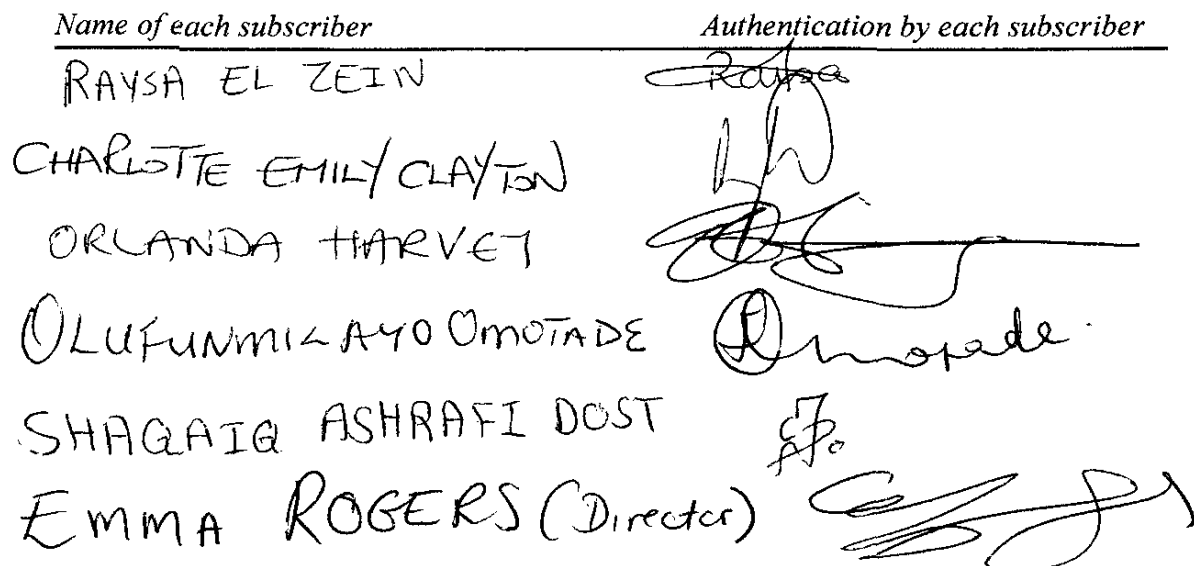 Name of each subscriber Authentication by each subscriber
RAYSA EL ZEIN Raysa
CHARLOTTE EMILY CLAYTON
ORLANDA HARVEY
OLUFUNMILAYO OMOTADE Omotade
SHAQAIQ ASHRAFI DOST
EMMA ROGERS (Director)